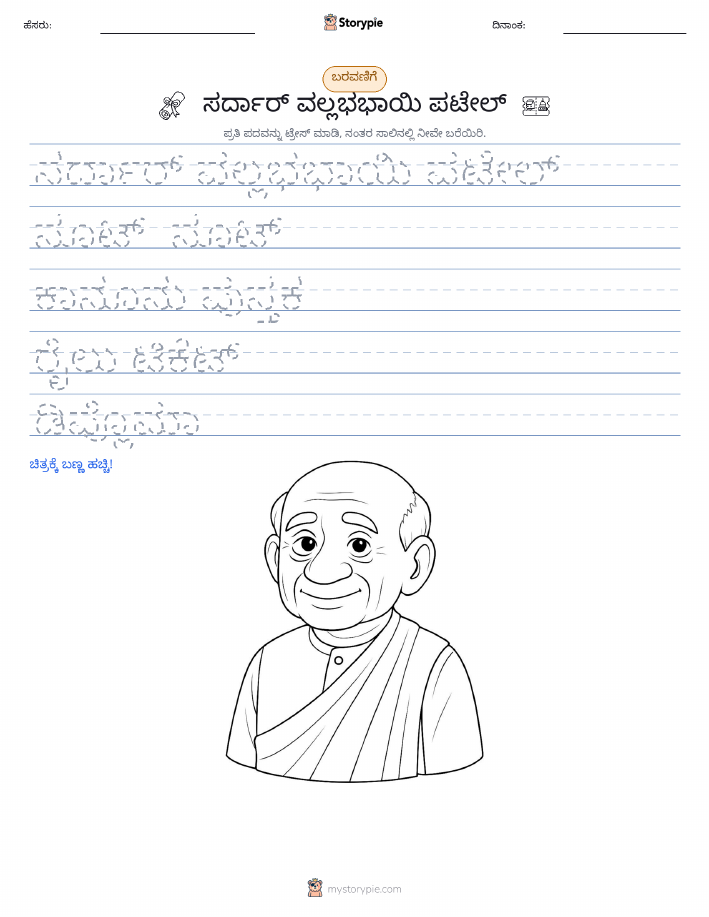 ಹೆಸರು:
Storypie
ದಿನಾಂಕ:
ಬರವಣಿಗೆ
ಸರ್ದಾರ್ ವಲ್ಲಭಭಾಯಿ ಪಟೇಲ್
ಪ್ರತಿ ಪದವನ್ನು ಟ್ರೇಸ್ ಮಾಡಿ, ನಂತರ ಸಾಲಿನಲ್ಲಿ ನೀವೇ ಬರೆಯಿರಿ.
ಸರ್ದಾರ್ ವಲ್ಲಭಭಾಯಿ ಪಟೇಲ್
ಸೂಟ್ ಸೂಟ್
ಕಾನೂನು ಪುಸ್ತಕ
ರೈಲು ಟಿಕೆಟ್
ಡಿಪ್ಲೊಮಾ
ಚಿತ್ರಕ್ಕೆ ಬಣ್ಣ ಹಚ್ಚಿ!
mystorypie.com